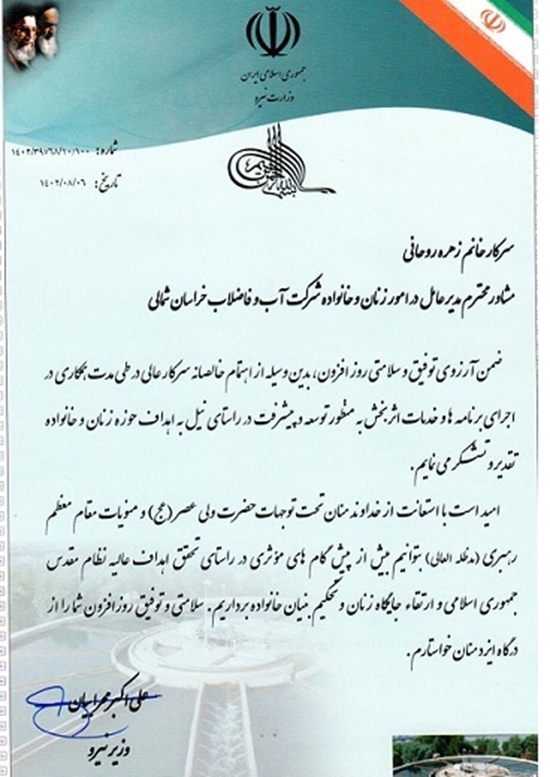 جمهوری اسلامی ایران
وزارت نیرو
شماره: ۱۴۰۲/۳۹۷۶۸/۱۰/۱۰۰
تاریخ: ۱۴۰۲/۰۸/۰۶
سرکار خانم زهره روحانی
مشاور محترم مدیرعامل در امور زنان و خانواده شرکت آب و فاضلاب خراسان شمالی
ضمن آرزوی توفیق و سلامتی روز افزون، بدین وسیله از اهتمام خالصانه سرکار عالی در طی مدت همکاری در
اجرای برنامه ها و خدمات اثر بخش به منظور توسعه و پیشرفت در راستای نیل به اهداف حوزه زنان و خانواده
تقدیر و تشکر می نمایم.
امید است با استعانت از خداوند منان تحت توجهات حضرت ولی عصر (عج) و منویات مقام معظم
رهبری (مدظله العالی) بتوانیم بیش از پیش گام های مؤثری در راستای تحقق اهداف عالیه نظام مقدس
جمهوری اسلامی و ارتقاء جایگاه زنان و تحکیم بنیان خانواده برداریم. سلامتی و توفیق روز افزون شما را از
درگاه ایزد منان خواستارم.
علی اکبر محرابیان
وزیر نیرو